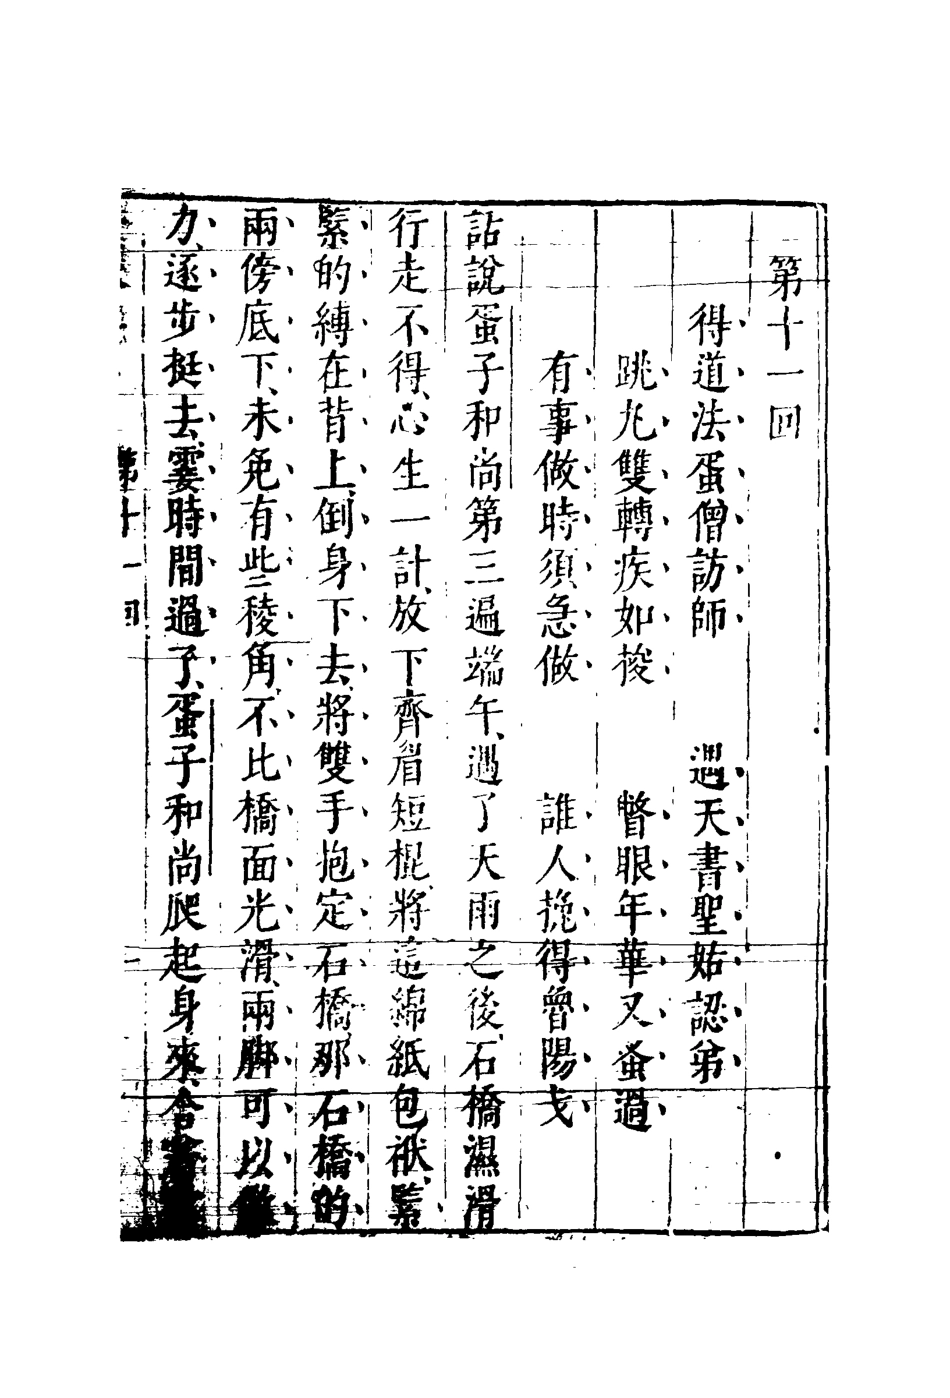 第十一回
得道法蛋僧訪師　遇天書聖姑認弟
跳丸雙轉疾如梭　瞥眼年華又蚤過
有事做時須急做　誰人挽得魯陽戈
話說蛋子和尚第三遍端午、過了天雨之後、石橋濕滑
行走不得、心生一計、放下齊眉短棍、將這綿紙包袱、緊
緊的縛在背上、倒身下去、將雙手抱定石橋、那石橋的
兩傍底下、未免有些稜角、不比橋面光滑、兩脚可以做
力、逐步挺去、霎時間過了、蛋子和尚爬起身來、合
第十一回